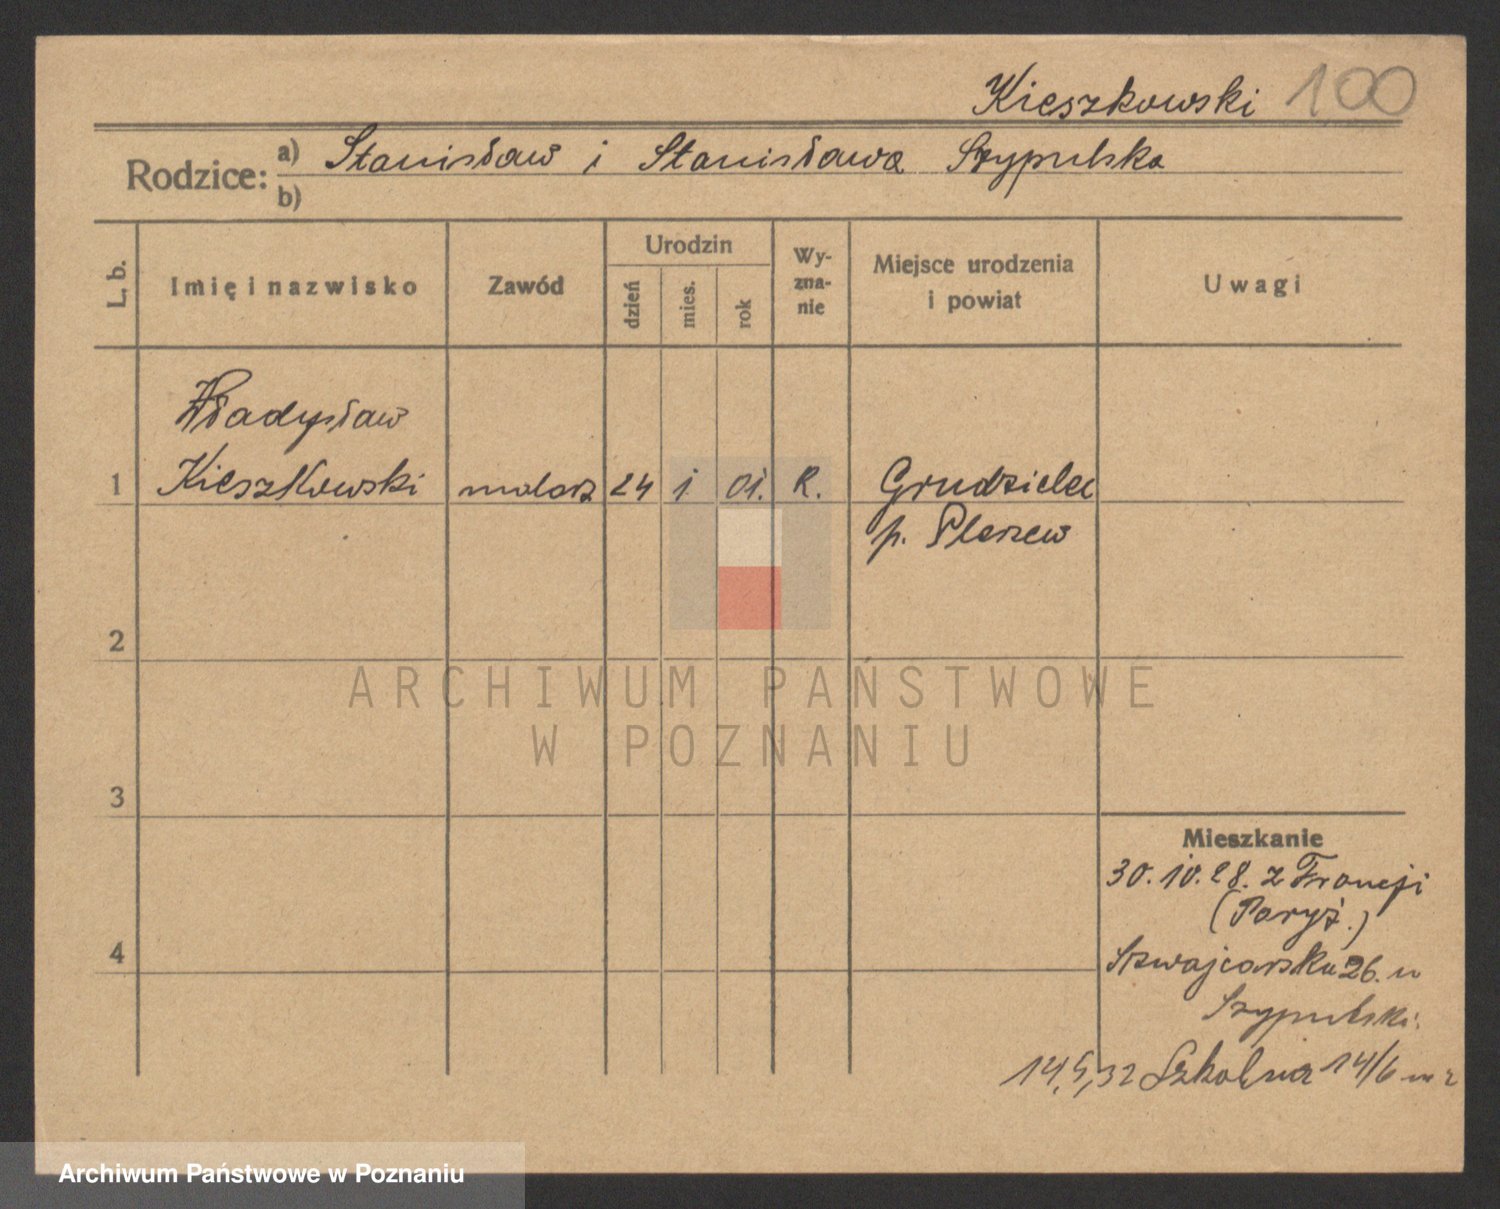 Kieszkowski 100
Rodzice: a) Stanisław i Stanisława Szypulska
b)
L. b.
Imię i nazwisko
Zawód
Urodzin
dzień
mies.
rok
Wy-
zna-
nie
Miejsce urodzenia
i powiat
Uwagi
Władysław
1 Kieszkowski malarz 24 1 01. R. Grudzielec
p. Pleszew
2
ARCHIWUM PAŃSTWOWE
W POZNANIU
3
Mieszkanie
30.10.28. z Francji
(Paryż.)
4
Szwajcarska 26. u
Szypulski.
14,5,32 Szkolna 14/6
Archiwum Państwowe w Poznaniu